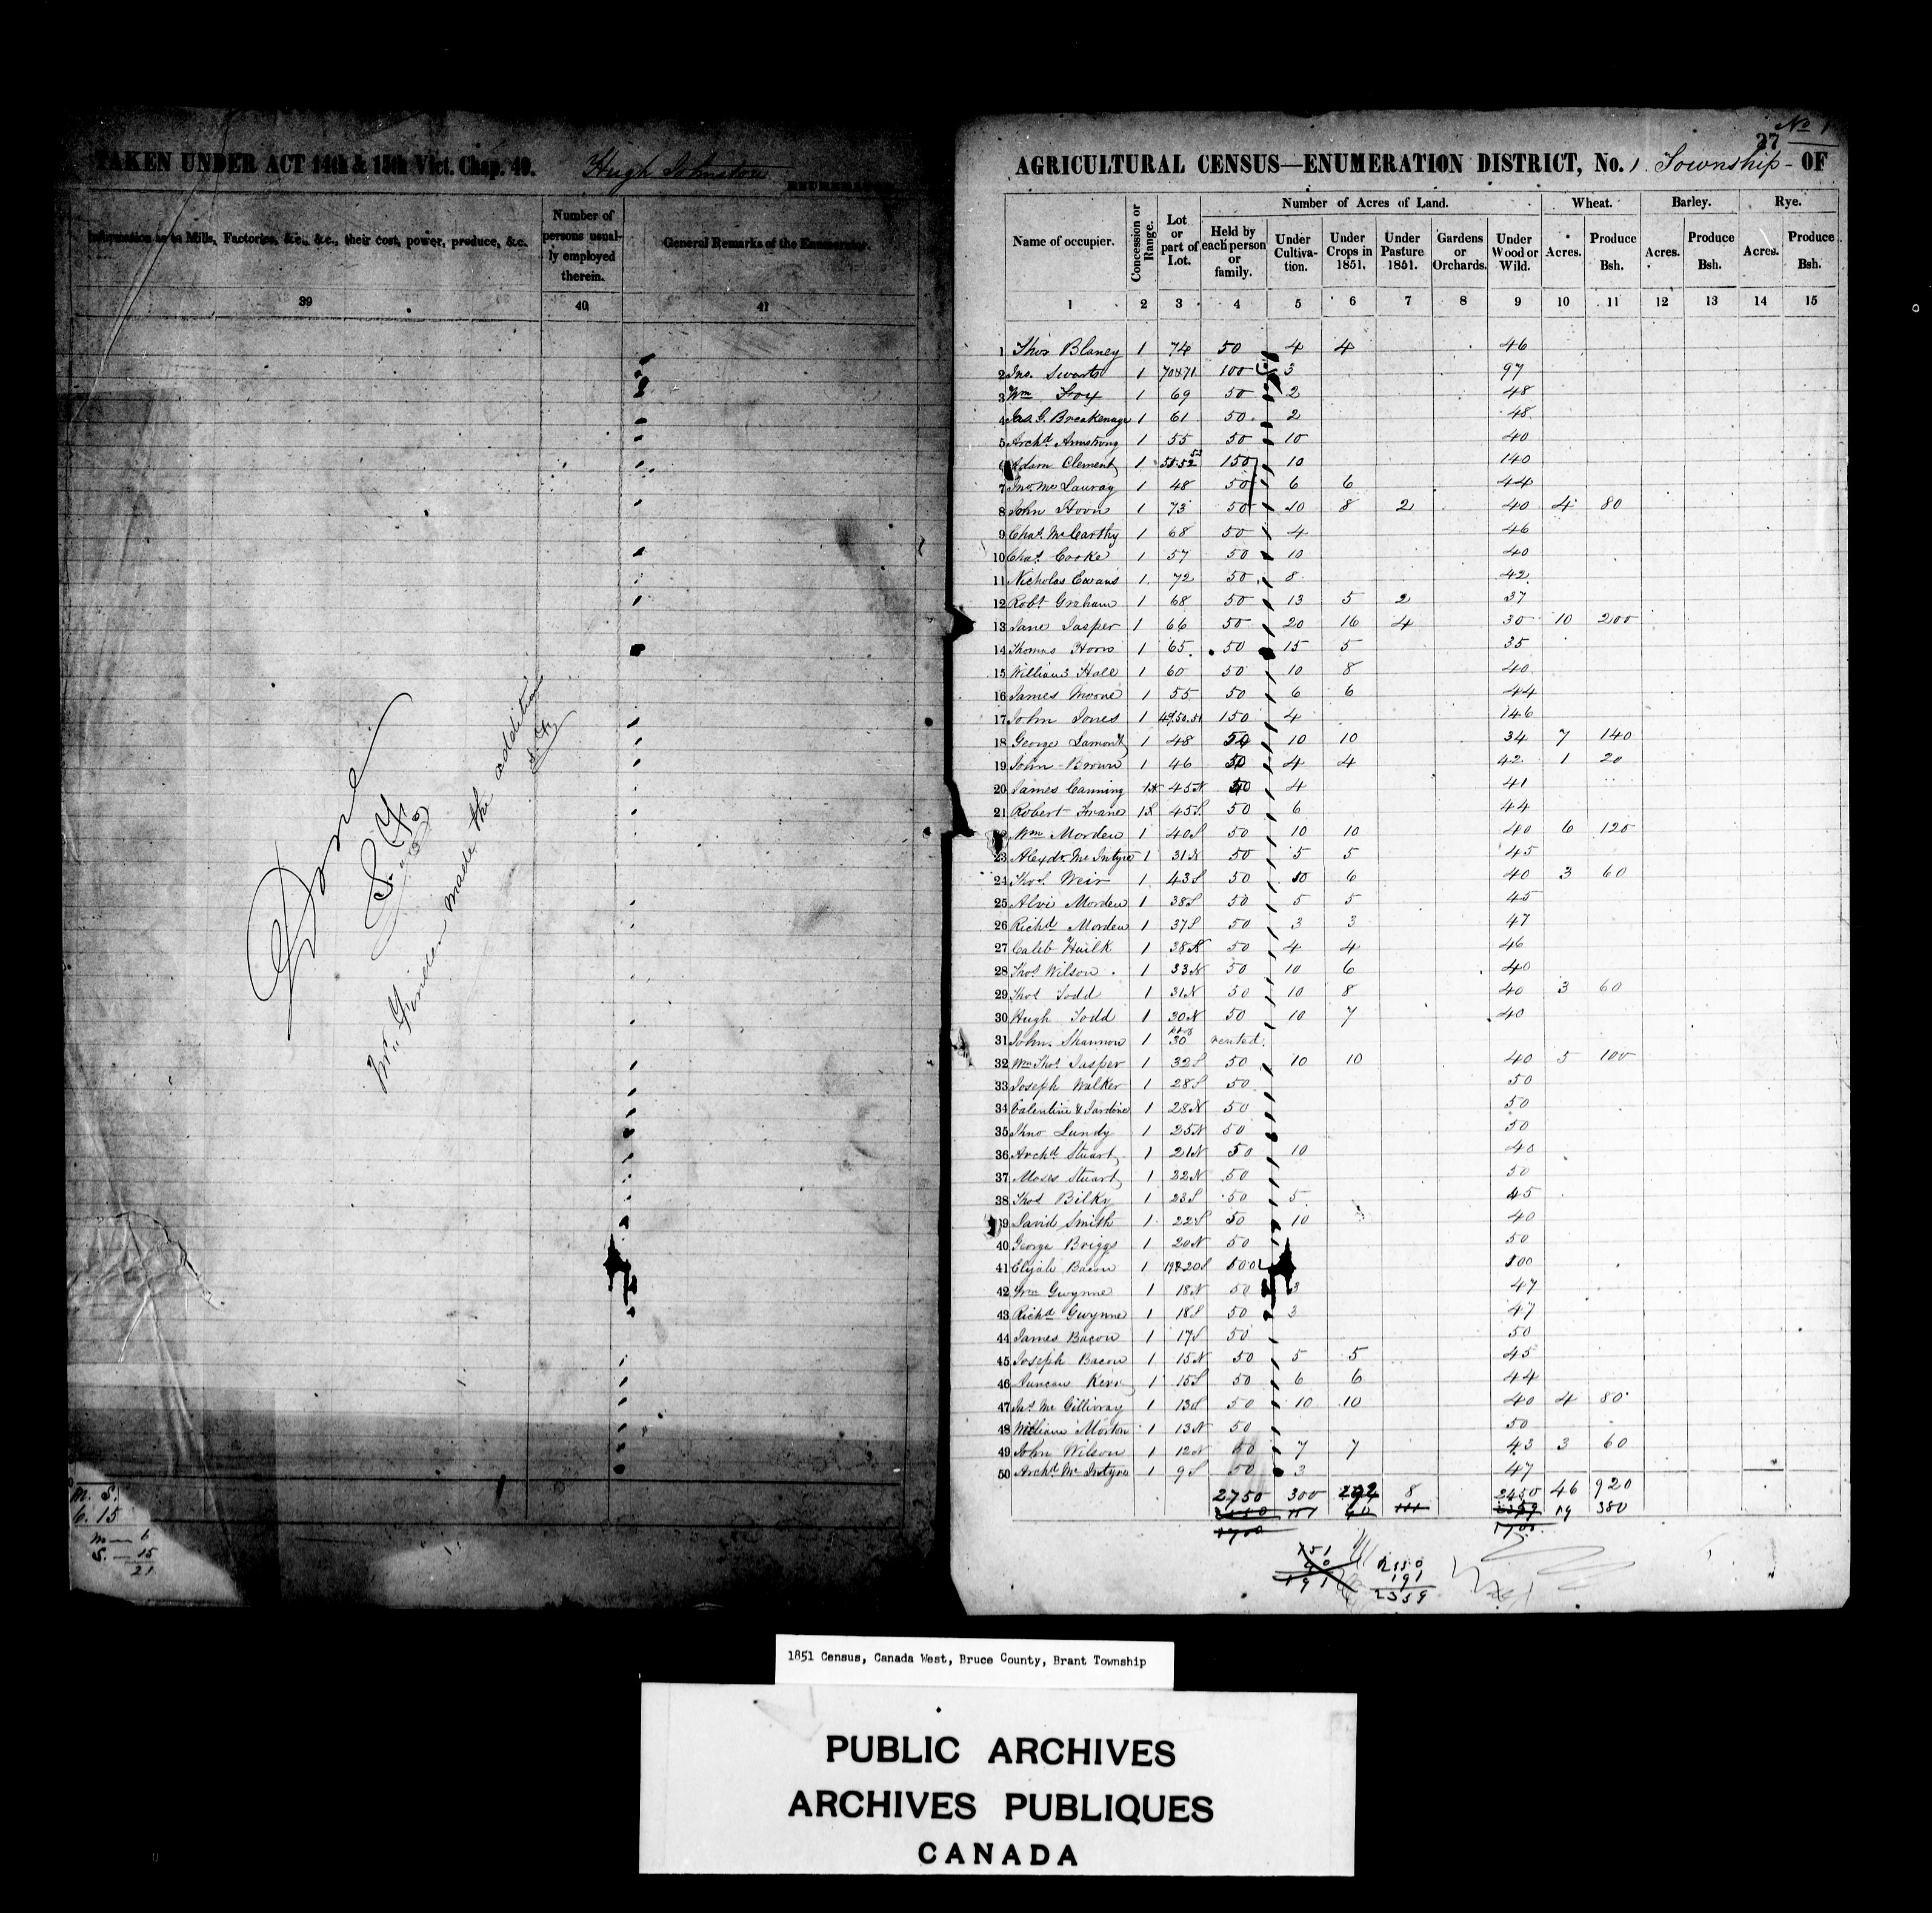 TAKEN UNDER ACT 14th & 15th Vict. Chap. 49. Hugh Johnston ENUMERATOR
Information as to Mills, Factories, &c., &c., their cost, power, produce, &c.
Number of persons usually employed therein.
General Remarks of the Enumerator.
39 40 41
Done
S. Y.
Mr. made the addition
S. Y.
M. S.
6. 15
M — 6
S. — 15
21
No 1
27
AGRICULTURAL CENSUS—ENUMERATION DISTRICT, No. 1 Township - OF
Name of occupier. Concession or Range. Lot or part of Lot. Number of Acres of Land. Wheat. Barley. Rye.
Held by each person or family. Under Cultivation. Under Crops in 1851. Under Pasture 1851. Gardens or Orchards. Under Wood or Wild. Acres. Produce Bsh. Acres. Produce Bsh. Acres. Produce Bsh.
1 2 3 4 5 6 7 8 9 10 11 12 13 14 15
1 Thos Blaney 1 74 50 4 4 46
2 Jno. Swarts 1 70&71 100 3 97
3 Wm Fox 1 69 50 2 48
4 Jas. G. Breakenage 1 61 50 2 48
5 Archd Armstrong 1 55 50 10 40
6 Adam Clement 1 150 10 140
7 Jno. Mc 1 48 50 6 6 44
8 John Hoover 1 73 50 10 8 2 40 4 80
9 Chas. McCarthy 1 68 50 4 46
10 Chas. Cooke 1 57 50 10 40
11 Nicholas Cavans 1 72 50 8 42
12 Robt Graham 1 68 50 13 5 2 37
13 Jane Jasper 1 66 50 20 16 4 30 10 200
14 Thomas Horn 1 65 50 15 5 35
15 William Hale 1 60 50 10 8 40
16 James Moore 1 55 50 6 6 44
17 John Jones 1 49.50.51 150 4 146
18 George Lamont 1 48 50 10 10 34 7 140
19 John Brown 1 46 50 4 4 42 1 20
20 James Canning 1N 45N 50 4 41
21 Robert 1S 45S 50 6 44
22 Wm Morden 1 40S 50 10 10 40 6 120
23 Alexdr McIntyre 1 31N 50 5 5 45
24 Thos. Weir 1 43S 50 10 6 40 3 60
25 Alvi Morden 1 38S 50 5 5 45
26 Richd Morden 1 37S 50 3 3 47
27 Caleb Huilk 1 38N 50 4 4 46
28 Thos Wilson 1 33N 50 10 6 40
29 Thos Todd 1 31N 50 10 8 40 3 60
30 Hugh Todd 1 30N 50 10 7 40
31 John Shannon 1 30 rented
32 Wm Thos. Jasper 1 32S 50 10 10 40 5 100
33 Joseph Walker 1 28S 50 50
34 Valentine & Jardine 1 28N 50 50
35 Lundy 1 25N 50 50
36 Archd Stuart 1 21N 50 10 40
37 Moses Stuart 1 22N 50 50
38 Thos Bilky 1 23S 50 5 45
39 David Smith 1 22S 50 10 40
40 George Briggs 1 20N 50 50
41 Elijah Bacon 1 19&20S 100
42 Wm Gwynne 1 18N 50 3 47
43 Richd Gwynne 1 18S 50 3 47
44 James Bacon 1 17S 50 50
45 Joseph Bacon 1 15N 50 5 5 45
46 Duncan Kerr 1 15S 50 6 6 44
47 Jas. McGillivray 1 13S 50 10 10 40 4 80
48 William Morton 1 13N 50 50
49 John Wilson 1 12N 50 7 7 43 3 60
50 Archd McIntyre 1 9S 50 3 47
2750 300 192 8 2450 46 920
151 40 19 380
1700 1700
151
40
191
191
1851 Census, Canada West, Bruce County, Brant Township
PUBLIC ARCHIVES
ARCHIVES PUBLIQUES
CANADA